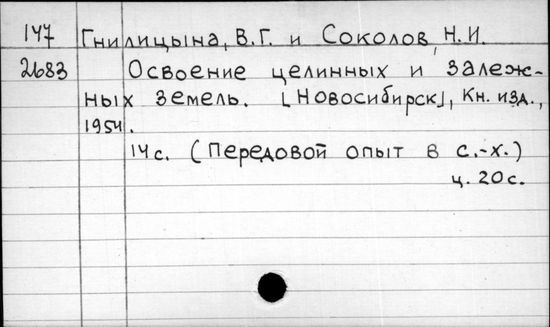 147 Гнилицына, В.Г. и Соколов, Н.И.
2683 Освоение целинных и залеж-
ных земель. [Новосибирск], Кн. изд.,
1954.
14 с. (Передовой опыт в с.-х.)
ц. 20 с.